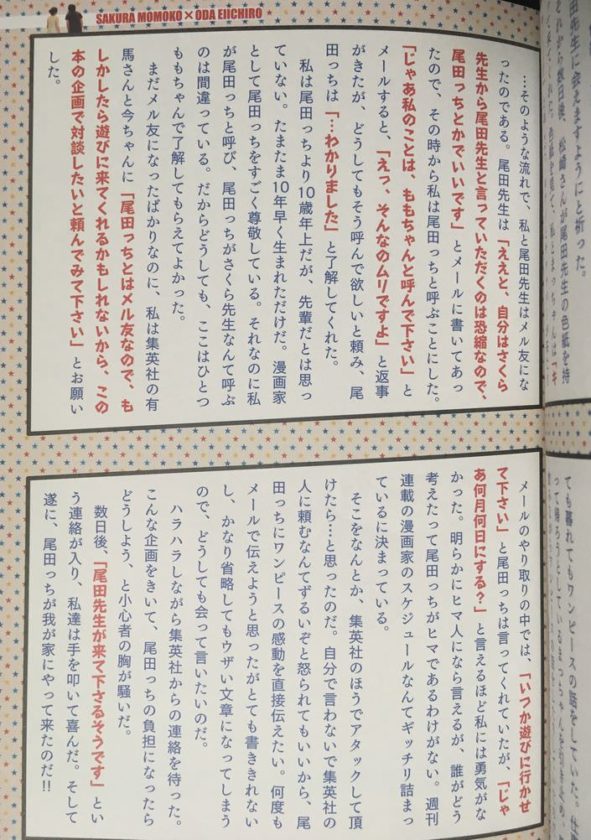 SAKURA MOMOKO×ODA EIICHIRO
…そのような流れで、私と尾田先生はメル友にな
ったのである。尾田先生は「ええと、自分はさくら
先生から尾田先生と言っていただくのは恐縮なので、
尾田っちとかでいいです」とメールに書いてあっ
たので、その時から私は尾田っちと呼ぶことにした。
「じゃあ私のことは、ももちゃんと呼んで下さい」と
メールすると、「えっ、そんなのムリですよ」と返事
がきたが、どうしてもそう呼んで欲しいと頼み、尾
田っちは「…わかりました」と了解してくれた。
私は尾田っちより10歳年上だが、先輩だとは思っ
ていない。たまたま10年早く生まれただけだ。漫画家
として尾田っちをすごく尊敬している。それなのに私
が尾田っちと呼び、尾田っちがさくら先生なんて呼ぶ
のは間違っている。だからどうしても、ここはひとつ
ももちゃんで了解してもらえてよかった。
まだメル友になったばかりなのに、私は集英社の有
馬さんと今ちゃんに「尾田っちとはメル友なので、も
しかしたら遊びに来てくれるかもしれないから、この
本の企画で対談したいと頼んでみて下さい」とお願い
した。
メールのやり取りの中では、「いつか遊びに行かせ
て下さい」と尾田っちは言ってくれていたが、「じゃ
あ何月何日にする?」と言えるほど私には勇気がな
かった。明らかにヒマ人になら言えるが、誰がどう
考えたって尾田っちがヒマであるわけがない。週刊
連載の漫画家のスケジュールなんてギッチリ詰まっ
ているに決まっている。
そこをなんとか、集英社のほうでアタックして頂
けたら…と思ったのだ。自分で言わないで集英社の
人に頼むなんてずるいぞと怒られてもいいから、尾
田っちにワンピースの感動を直接伝えたい。何度も
メールで伝えようと思ったがとても書ききれない
し、かなり省略してもウザい文章になってしまう
ので、どうしても会って言いたいのだ。
ハラハラしながら集英社からの連絡を待った。
こんな企画をきいて、尾田っちの負担になったら
どうしよう、と小心者の胸が騒いだ。
数日後、「尾田先生が来て下さるそうです」とい
う連絡が入り、私達は手を叩いて喜んだ。そして
遂に、尾田っちが我が家にやって来たのだ!!